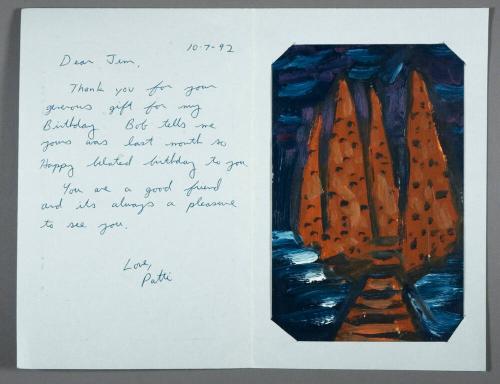 10-7-92
Dear Jim,
Thank you for your
generous gift for my
Birthday Bob tells me
yours was last month so
Happy belated birthday to you
You are a good friend
and its always a pleasure
to see you.
Love,
Patti